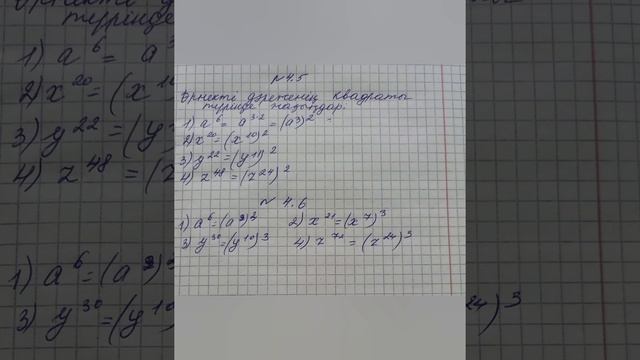 №4.5
Өрнекті дәреженің квадраты
түрінде жазыңдар.
1) a⁶ = a³·² = (a3)²
2) x²⁰ = (x¹⁰)²
3) y²² = (y¹¹)²
4) z⁴⁸ = (z²⁴)²
№ 4.6
1) a⁶ = (a²)³ 2) x²¹ = (x⁷)³
3) y³⁰ = (y¹⁰)³ 4) z⁷² = (z²⁴)³